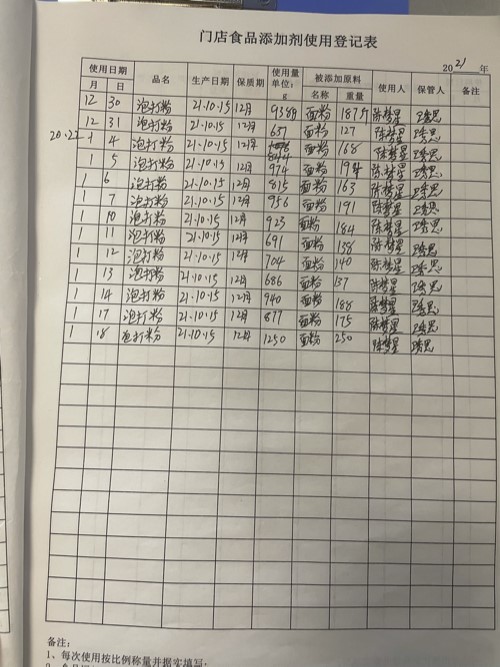 门店食品添加剂使用登记表
2021 年
使用日期 品名 生产日期 保质期 使用量单位:g 被添加原料 使用人 保管人 备注
月 日 名称 重量
12 30 泡打粉 21.10.15 12月 938g 面粉 187斤 陈梦星
12 31 泡打粉 21.10.15 12月 637 面粉 127 陈梦星
20.22
1 4 泡打粉 21.10.15 12月 844 面粉 168 陈梦星
1 5 泡打粉 21.10.15 12月 974 面粉 194 陈梦星
1 6 泡打粉 21.10.15 12月 815 面粉 163 陈梦星
1 7 泡打粉 21.10.15 12月 956 面粉 191 陈梦星
1 10 泡打粉 21.10.15 12月 923 面粉 184 陈梦星
1 11 泡打粉 21.10.15 12月 691 面粉 138 陈梦星
1 12 泡打粉 21.10.15 12月 704 面粉 140 陈梦星
1 13 泡打粉 21.10.15 12月 686 面粉 137 陈梦星
1 14 泡打粉 21.10.15 12月 940 面粉 188 陈梦星
1 17 泡打粉 21.10.15 12月 877 面粉 175 陈梦星
18 泡打粉 21.10.15 12月 1250 面粉 250 陈梦星
备注:
1、每次使用按比例称量并据实填写;